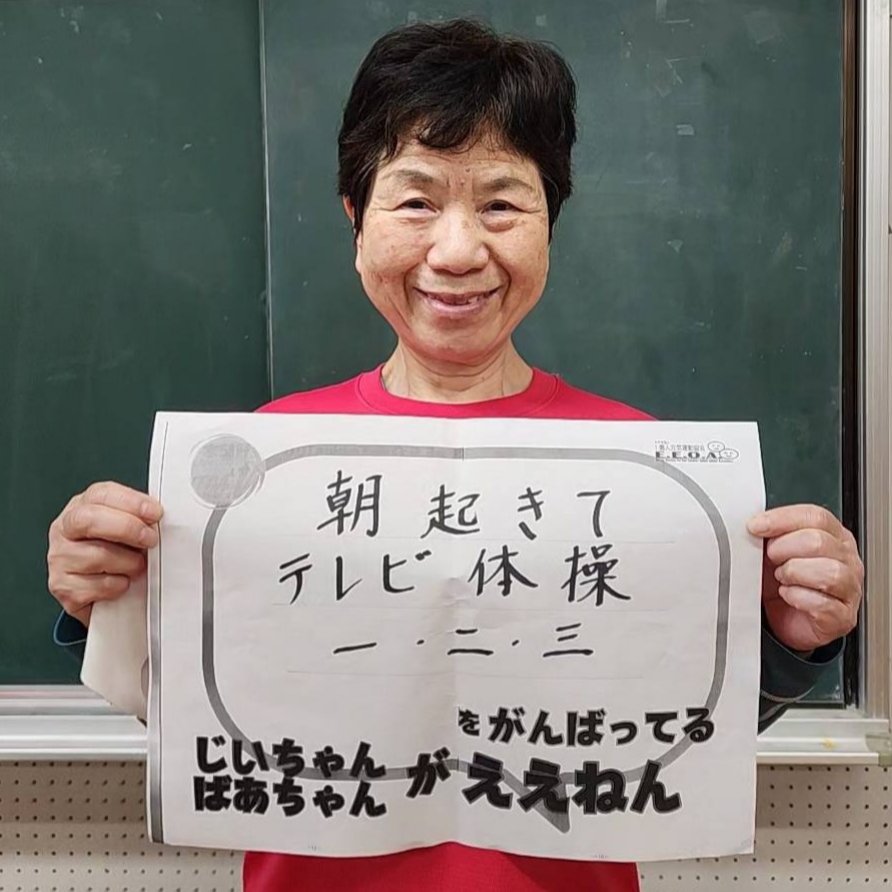 E.E.O.A
朝起きて
テレビ体操
一・二・三
をがんばってる
じいちゃん
ばあちゃん
がええねん